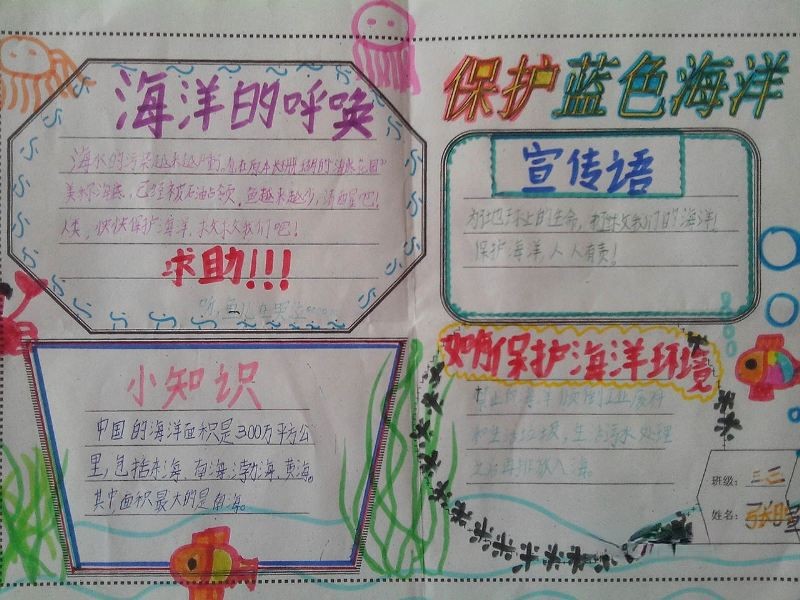 海洋的呼唤
海水的污染越来越严重，原本太珊瑚的海底花园
美丽海底，已经被石油占领，鱼越来越少，请醒醒吧！
人类，快快保护海洋，救救我们吧！
求助!!!
听，鱼儿在哭泣
小知识
中国的海洋面积是300万平方公
里，包括东海、南海、渤海、黄海。
其中面积最大的是南海。
保护蓝色海洋
宣传语
为地球上的生命，拯救我们的海洋！
保护海洋，人人有责！
如何保护海洋环境
禁止向海洋倾倒工业废料
和生活垃圾，生活污水处理
之后再排放入海。
班级：三三
姓名：